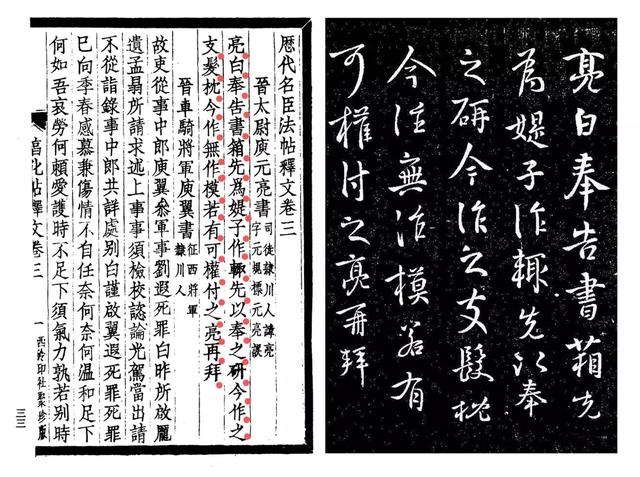 亮白奉告書箱先
為媞子作輒先以奉
之研今作之支髮枕
今作無作模若有
可權付之亮再拜
歷代名臣法帖釋文卷三
晉太尉庾元亮書
司徒隸川人諱亮
字元規標元亮誤
亮白奉告書箱先為媞子作輒先以奉之研今作之
支髮枕今作無作模若有可權付之亮再拜
晉車騎將軍庾翼書
征西將軍
隸川人
故吏從事中郎庾翼叅軍事劉遐死罪白昨所啟龐
遺孟所請求述上事事須檢校認論光駕當出請
不從詣錄事中郎共詳處別白謹啟翼遐死罪死罪
已向季春感慕兼傷情不自任奈何奈何溫和足下
何如吾哀勞何賴愛護時不足下須氣力孰若別時
化帖釋文卷三
一
西泠印社聚珍版
三三